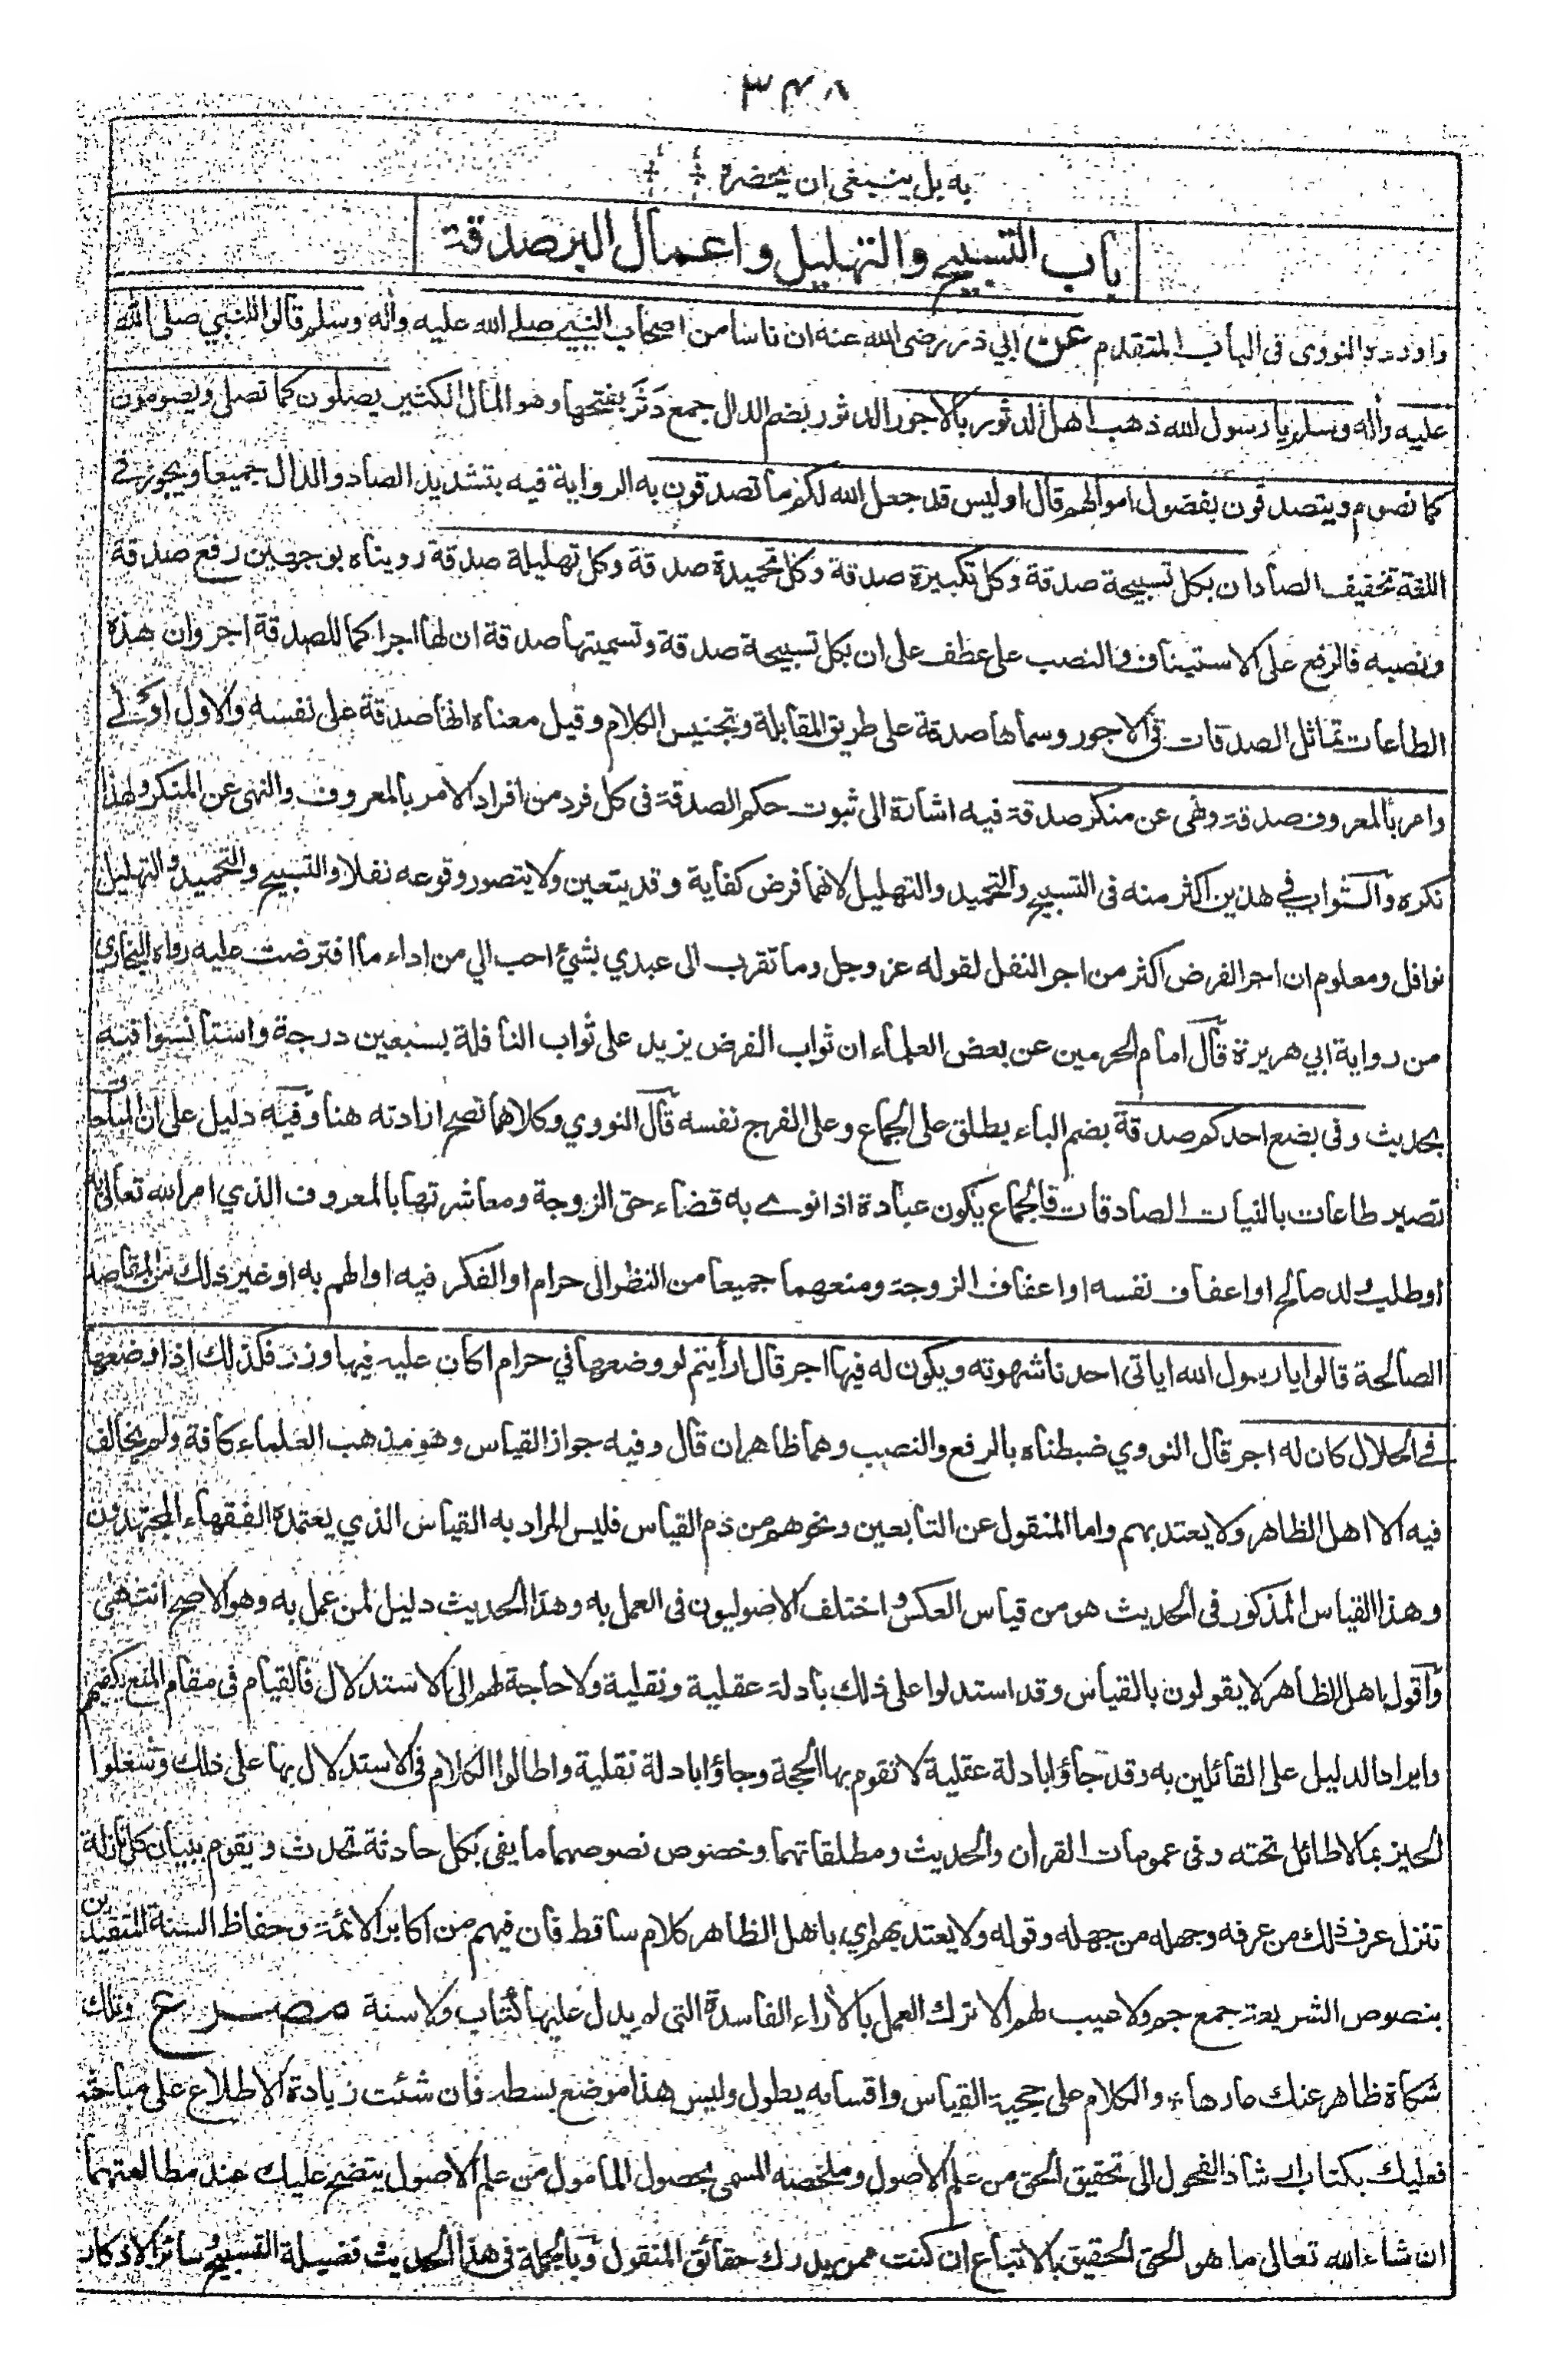 ٣٤٨
به بل ينبغي ان يحضره
باب التسبيح والتهليل واعمال البر صدقة
واورده النووى فى الباب المتقدم عن ابي ذر رضى الله عنه ان ناسا من اصحاب النبي صلى الله عليه واله وسلم قالوا للنبي صلى الله
عليه واله وسلم يا رسول الله ذهب اهل الدثور بالاجور الدثور بضم الدال جمع دَثْر بفتحها وهو المال الكثير يصلون كما نصلى ويصومون
كما نصوم ويتصدقون بفضول اموالهم قال اوليس قد جعل الله لكم ما تصدقون به الرواية فيه بتشديد الصاد والدال جميعا ويجوز في
اللغة تخفيف الصاد ان بكل تسبيحة صدقة وكل تكبيرة صدقة وكل تحميدة صدقة وكل تهليلة صدقة رويناه بوجهين رفع صدقة
ونصبه فالرفع على الاستيناف والنصب على عطف على ان بكل تسبيحة صدقة وتسميتها صدقة ان لها اجرا كما للصدقة اجر وان هذه
الطاعات تماثل الصدقات فى الاجور وسماها صدقة على طريق المقابلة وتجنيس الكلام وقيل معناه انها صدقة على نفسه والاول اولى
وامر بالمعروف صدقة ونهى عن منكر صدقة فيه اشارة الى ثبوت حكم الصدقة فى كل فرد من افراد الامر بالمعروف والنهى عن المنكر ولهذا
نكره والثواب في هذين اكثر منه فى التسبيح والتحميد والتهليل لانهما فرض كفاية وقد يتعين ولا يتصور وقوعه نفلا والتسبيح والتحميد والتهليل
نوافل ومعلوم ان اجر الفرض اكثر من اجر النفل لقوله عز وجل وما تقرب الى عبدي بشيء احب الي من اداء ما افترضت عليه رواه البخاري
من رواية ابي هريرة قال امام الحرمين عن بعض العلماء ان ثواب الفرض يزيد على ثواب النافلة بسبعين درجة واستأنسوا فيه
بحديث وفى بضع احدكم صدقة بضم الباء يطلق على الجماع وعلى الفرج نفسه قال النووي وكلاهما تصح ارادته هنا وفيه دليل على ان المباحات
تصير طاعات بالنيات الصادقات فالجماع يكون عبادة اذا نوى به قضاء حق الزوجة ومعاشرتها بالمعروف الذي امر الله تعالى به
او طلب ولد صالح او اعفاف نفسه او اعفاف الزوجة ومنعهما جميعا من النظر الى حرام او الفكر فيه او الهم به او غير ذلك من المقاصد
الصالحة قالوا يا رسول الله اياتى احدنا شهوته ويكون له فيها اجر قال ارأيتم لو وضعها في حرام اكان عليه فيها وزر فكذلك اذا وضعها
في الحلال كان له اجر قال النووي ضبطناه بالرفع والنصب وهما ظاهران قال وفيه جواز القياس وهو مذهب العلماء كافة ولم يخالف
فيه الا اهل الظاهر ولا يعتد بهم واما المنقول عن التابعين ونحوهم من ذم القياس فليس المراد به القياس الذي يعتمده الفقهاء المجتهدون
وهذا القياس المذكور فى الحديث هو من قياس العكس واختلف الاصوليون فى العمل به وهذا الحديث دليل لمن عمل به وهو الاصح انتهى
واقول اهل الظاهر لا يقولون بالقياس وقد استدلوا على ذلك بادلة عقلية ونقلية ولا حاجة لهم الى الاستدلال فالقيام فى مقام المنع يكفيهم
وايراد الدليل على القائلين به وقد جاؤا بادلة عقلية لا تقوم بها الحجة وجاؤا بادلة نقلية واطالوا الكلام فى الاستدلال بها على ذلك وشغلوا
الحيز بما لا طائل تحته وفى عمومات القران والحديث ومطلقاتهما وخصوص نصوصهما ما يفى بكل حادثة تحدث ويقوم ببيان كل نازلة
تنزل عرف ذلك من عرفه وجهله من جهله وقوله ولا يعتد بهم اي باهل الظاهر كلام ساقط فان فيهم من اكابر الائمة وحفاظ السنة المتقيدين
بنصوص الشريعة جمع جم ولا عيب لهم الا ترك العمل بالاراء الفاسدة التى لم يدل عليها كتاب ولا سنة مصرع وتلك
شكاة ظاهر عنك عارها؛ والكلام على حجية القياس واقسامه يطول وليس هذا موضع بسطه فان شئت زيادة الاطلاع على مباحثه
فعليك بكتاب ارشاد الفحول الى تحقيق الحق من علم الاصول وملخصه المسمى بحصول المأمول من علم الاصول يتضح عليك عند مطالعتهما
ان شاء الله تعالى ما هو الحق الحقيق بالاتباع ان كنت ممن يدرك حقائق المنقول وبالجملة فى هذا الحديث فضيلة التسبيح وسائر الاذكار